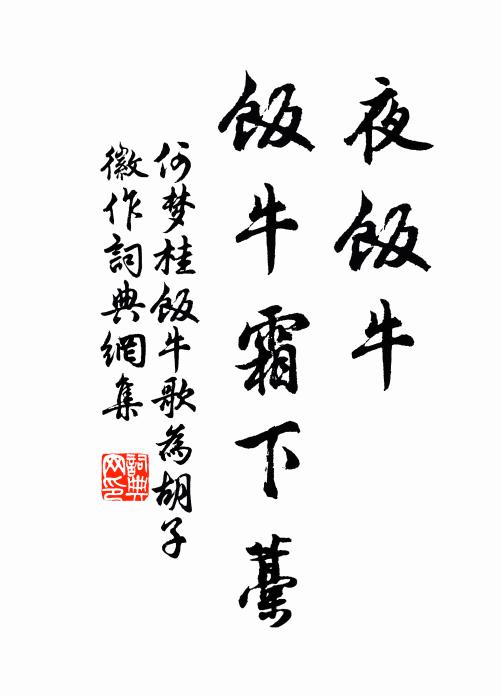 夜飯牛
飯牛霜下藁
何梦桂飯牛歌為胡子
徽作詞典網集
詞典
网印